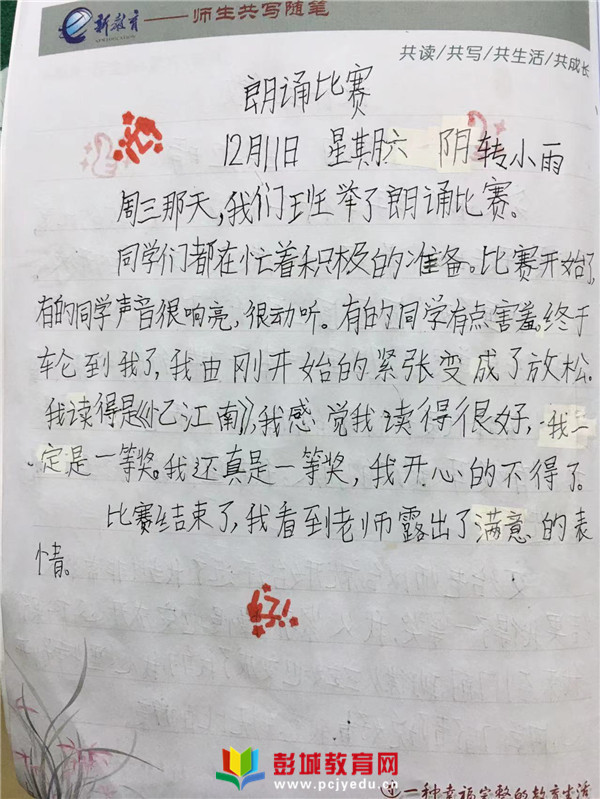 新教育——师生共写随笔
共读/共写/共生活/共成长
朗诵比赛
12月11日 星期六 阴转小雨
周三那天,我们班举了朗诵比赛。
同学们都在忙着积极的准备。比赛开始了,
有的同学声音很响亮,很动听。有的同学有点害羞。终于
轮到我了,我由刚开始的紧张变成了放松。
我读得是《忆江南》,我感觉我读得很好,我一
定是一等奖。我还真是一等奖,我开心的不得了。
比赛结束了,我看到老师露出了满意的表
情。
好!
彭城教育网
www.pcjyedu.cn
过一种幸福完整的教育生活